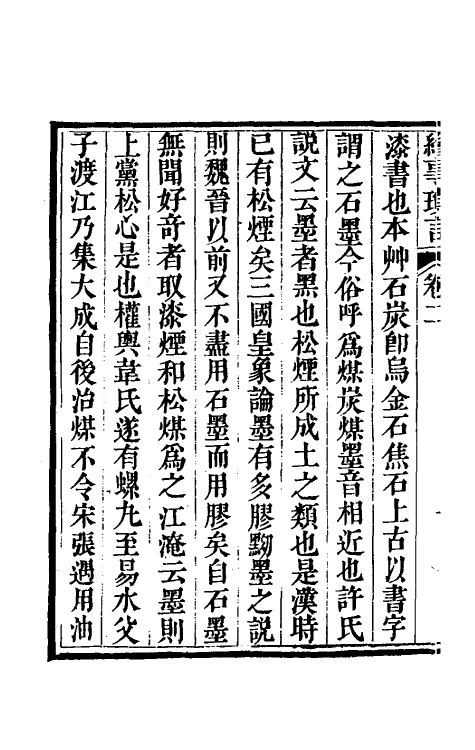 繪事瑣言 卷二
漆書也本艸石炭卽烏金石焦石上古以書字
謂之石墨今俗呼爲煤炭煤墨音相近也許氏
説文云墨者黑也松煙所成土之類也是漢時
已有松煙矣三國皇象論墨有多膠黝墨之說
則魏晉以前又不盡用石墨而用膠矣自石墨
無聞好奇者取漆煙和松煤爲之江淹云墨則
上黨松心是也權輿韋氏遂有螺九至易水父
子渡江乃集大成自後治煤不令宋張遇用油